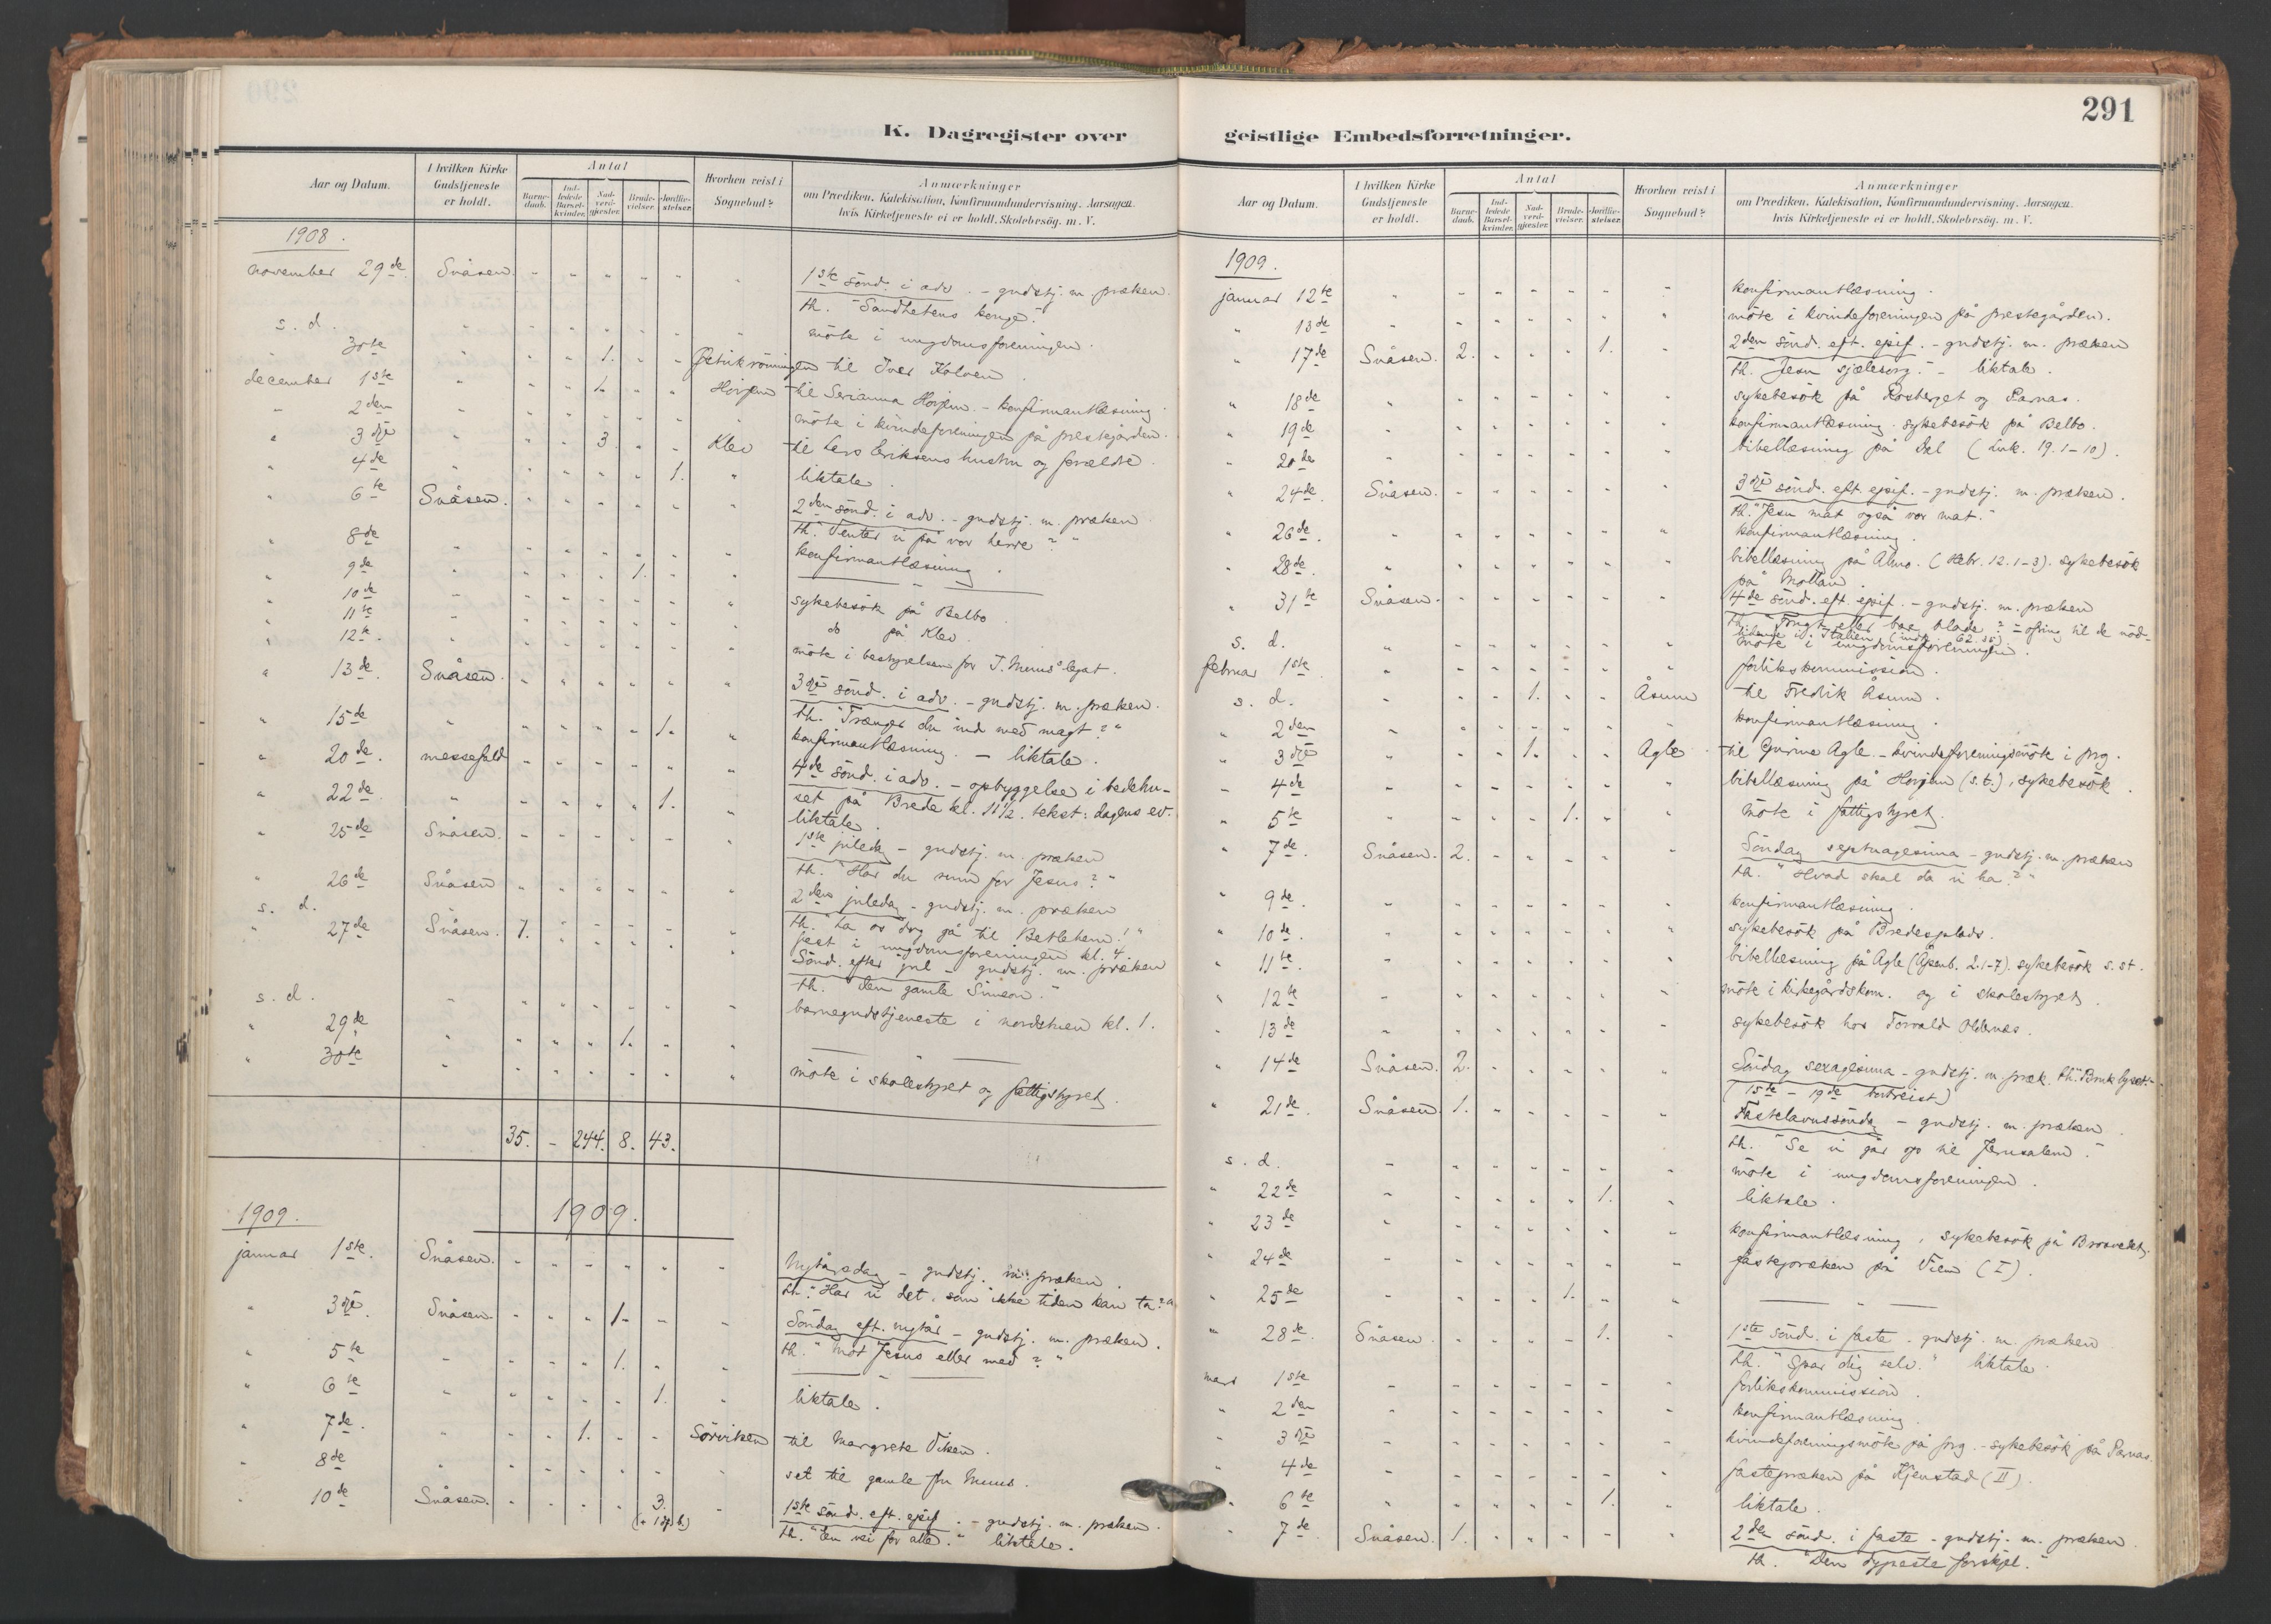 291
K. Dagregister over
geistlige Embedsforretninger.
Aar og Datum.
I hvilken Kirke Gudstjeneste er holdt.
Antal
Barne-daab.
Ind-ledede Barsel-kvinder.
Nad-verd-gjæster.
Brude-vielser.
Jordfæ-stelser.
Hvorhen reist i Sognebud?
Anmærkninger
om Prædiken, Katekisation, Konfirmandundervisning, Aarsagen
hvis Kirketjeneste ei er holdt, Skolebesög. m. V.
1908.
november 29de Snåsen. 1ste sönd. i adv. - gudstj. m. præken.
th. "Sandhetens konge."
s. d. möte i ungdomsforeningen.
" 30te 1. til Iver
december 1ste 1. til Serianna - konfirmantlæsning.
" 2den möte i kvindeforeningen på prestegården.
" 3dje 3. Klev til Lars Eriksens hustru og forældre.
" 4de 1. liktale.
" 6te Snåsen. 2den sönd. i adv. - gudstj. m. præken
th. "Venter vi på vor herre?"
" 8de konfirmantlæsning.
" 9de 1. — " —
" 10de sykebesök på Belbo.
" 11te do på Klev.
" 12te möte i bestyrelsen for J. Muus' legat.
" 13de. Snåsen. 3dje sönd. i adv. - gudstj. m. præken.
th. "Trænger du ind med magt?"
" 15de 1. konfirmantlæsning. - liktale.
" 20de. messefald 4de sönd. i adv. - opbyggelse i bedehu-
set på Brede kl. 11½. tekst: dagens ev.
" 22de 1. liktale.
" 25de Snåsen. 1ste juledag - gudstj. m. præken
th. "Har du rum for Jesus?"
" 26de Snåsen 2den juledag - gudstj. m. præken
th. "La os dog gå til Betlehem!"
s. d. fest i ungdomsforeningen kl. 4.
" 27de Snåsen. 1. Sönd. efter jul - gudstj. m. præken
th. "Den gamle Simeon."
s. d. barnegudstjeneste i kl. 1.
" 29de 1. — " —
" 30te möte i skolestyret og fattigstyret.
35. - 244. 8. 43.
1909. 1909.
januar 1ste. Snåsen. Nytårsdag - gudstj. m. præken.
th. "Har vi det, som ikke tiden kan ta?"
" 3dje. Snåsen. 1. Söndag eft. nytår - gudstj. m. præken.
th. "Mot Jesus eller med?"
" 5te 1. — " —
" 6te 1. liktale.
" 7de. 1. Sörviken til Margrete Viken.
" 8de set til gamle fru Muus.
" 10de Snåsen. 3. 1ste sönd. eft. epif. - gudstj. m. præken.
th. "En vei for alle." liktale.
Aar og Datum.
I hvilken Kirke Gudstjeneste er holdt.
Antal
Barne-daab.
Ind-ledede Barsel-kvinder.
Nad-verd-gjæster.
Brude-vielser.
Jordfæ-stelser.
Hvorhen reist i Sognebud?
Anmærkninger
om Prædiken, Katekisation, Konfirmandundervisning, Aarsagen
hvis Kirketjeneste ei er holdt, Skolebesög. m. V.
1909.
januar 12te konfirmantlæsning.
" 13de möte i kvindeforeningen på prestegården.
" 17de Snåsen. 2. 1. 2den sönd. eft. epif. - gudstj. m. præken
th. "Jesu sjælesorg." - liktale.
" 18de sykebesök på og Parnas.
" 19de konfirmantlæsning. sykebesök på Belbo.
" 20de bibellæsning på (Luk. 19. 1-10).
" 24de. Snåsen. 3dje sönd. eft. epif. - gudstj. m. præken.
th. "Jesu mat også vor mat."
" 26de. konfirmantlæsning.
" 28de. bibellæsning på Almo. (Hebr. 12. 1-3). sykebesök
på
" 31te Snåsen. 4de sönd. eft. epif. - gudstj. m. præken
th. "Frugt eller bare blade?" - ofring til de nöd-
lidende i Italien (indk. 62.35)
s. d. möte i ungdomsforeningen.
februar 1ste forlikskommission.
s. d. 1. Åsum til Fredrik Åsum.
" 2den konfirmantlæsning.
" 3dje 1. Agle til Gurine Agle. - kvindeforeningsmöte i prg.
" 4de bibellæsning på (s.t.), sykebesök.
" 5te 1. möte i fattigstyret.
" 7de. Snåsen. 2. Söndag septuagesima - gudstj. m. præken
th. "Hvad skal da vi ha?"
" 9de. konfirmantlæsning.
" 10de. sykebesök på Bredesplads.
" 11te. bibellæsning på Agle (Åpenb. 2. 1-7). sykebesök s. st.
" 12te möte i kirkegårdskom. og i skolestyret.
" 13de sykebesök hos Torvald Oldernæs.
" 14de Snåsen. 2. Söndag sexagesima - gudstj. m. præk. th. "Bruk lyset."
(15de - 19de bortreist)
" 21de. Snåsen. 1. Fastelavnssöndag - gudstj. m. præken.
th. "Se vi går op til Jerusalem."
s. d. möte i ungdomsforeningen.
" 22de 1. liktale.
" 23de konfirmantlæsning, sykebesök på
" 24de fastepræken på Viem (I).
" 25de 1. — " —
" 28de. Snåsen. 1. 1ste sönd. i faste - gudstj. m. præken
th. "Spar dig selv." liktale.
mars 1ste forlikskommission.
" 2den konfirmantlæsning.
" 3dje kvindeforeningsmöte på prg. - sykebesök på Parnas.
" 4de fastepræken på Kjenstad (II).
" 6te 1. liktale.
" 7de Snåsen. 1. 2den sönd. i faste - gudstj. m. præken.
th. "Den dypeste forskjel."